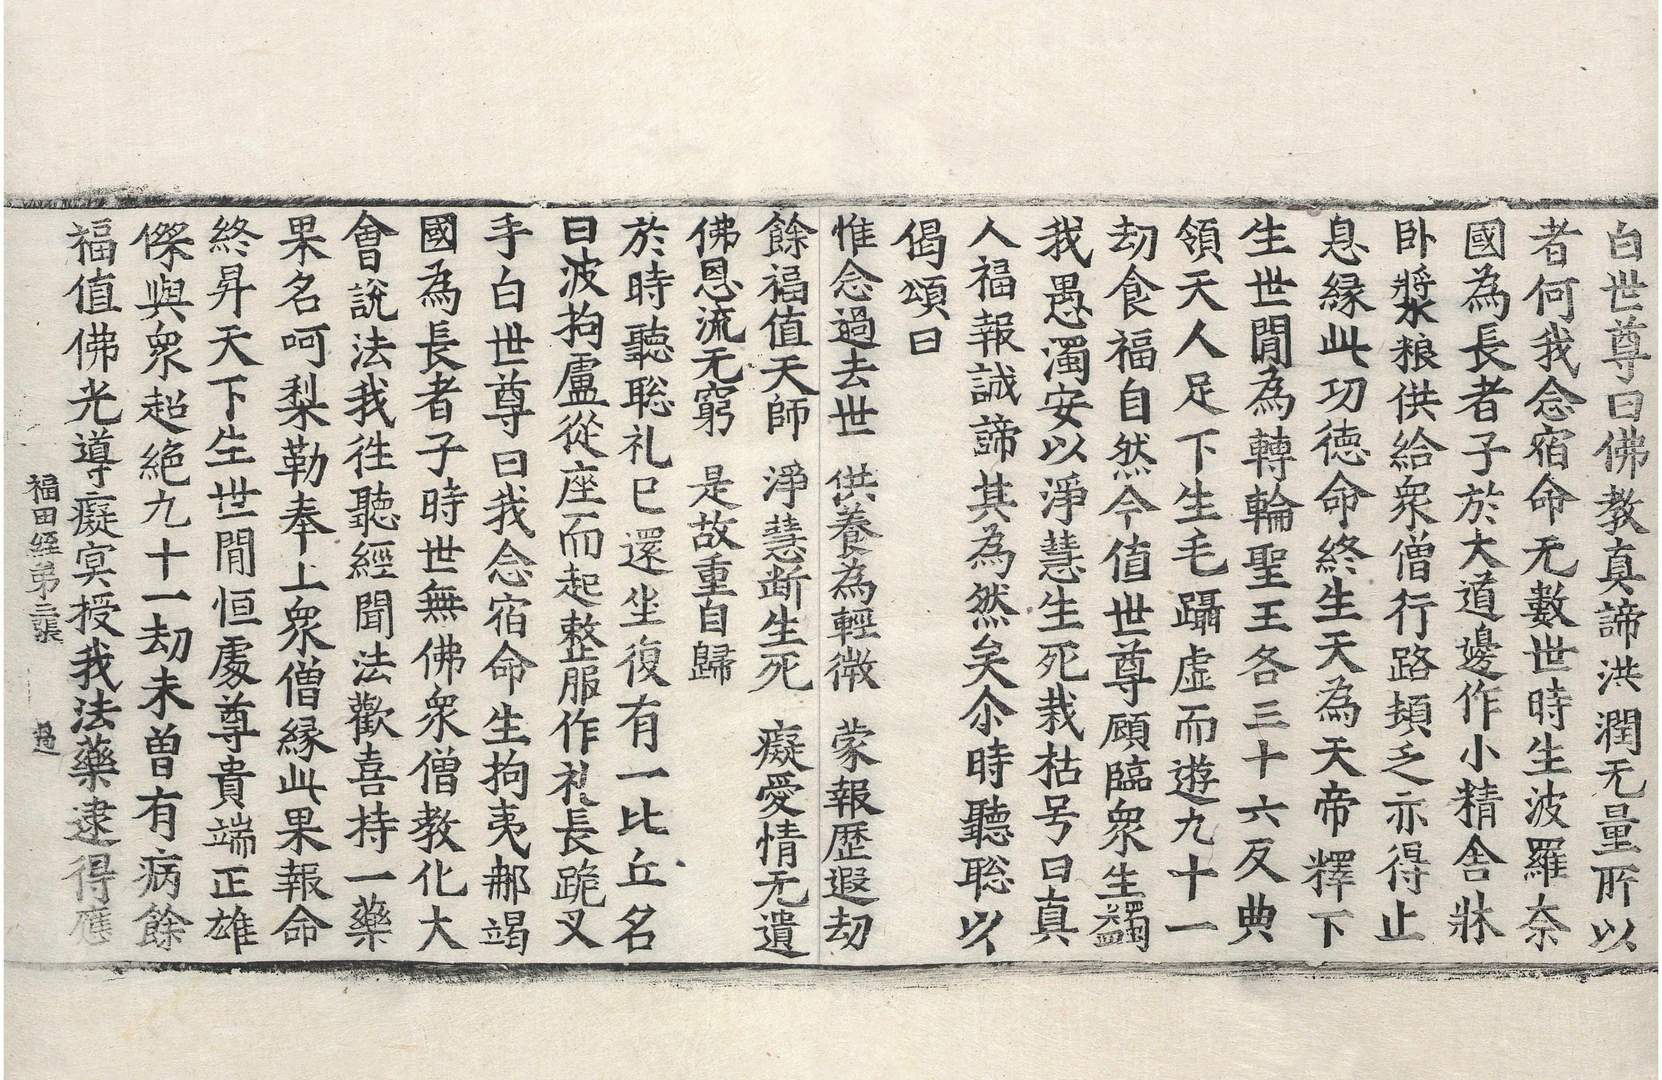 白世尊曰佛教真諦洪潤无量所以
者何我念宿命无數世時生波羅奈
國為長者子於大道邊作小精舍牀
卧漿粮供給衆僧行路頓乏亦得止
息縁此功德命終生天為天帝釋下
生世閒為轉輪聖王各三十六反典
領天人足下生毛躡虛而遊九十一
劫食福自然今值世尊顧臨衆生蠲
我愚濁安以淨慧生死栽枯号曰真
人福報誠諦其為然矣尒時聽聡以
偈頌曰
惟念過去世　供養為輕微　蒙報歷遐劫
餘福值天師　淨慧断生死　癡愛情无遺
佛恩流无窮　是故重自歸
於時聽聡礼已還坐復有一比丘名
曰波拘盧從座而起整服作礼長跪叉
手白世尊曰我念宿命生拘夷郍竭
國為長者子時世無佛衆僧教化大
會說法我往聽經聞法歡喜持一藥
果名呵梨勒奉上衆僧縁此果報命
終昇天下生世閒恒處尊貴端正雄
傑與衆超絶九十一劫未曽有病餘
福值佛光導癡冥授我法藥逮得應
福田經第三張　過